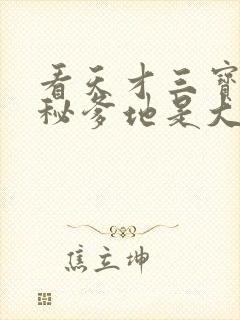 看天才三寳
秘爹地是大
焦立坤